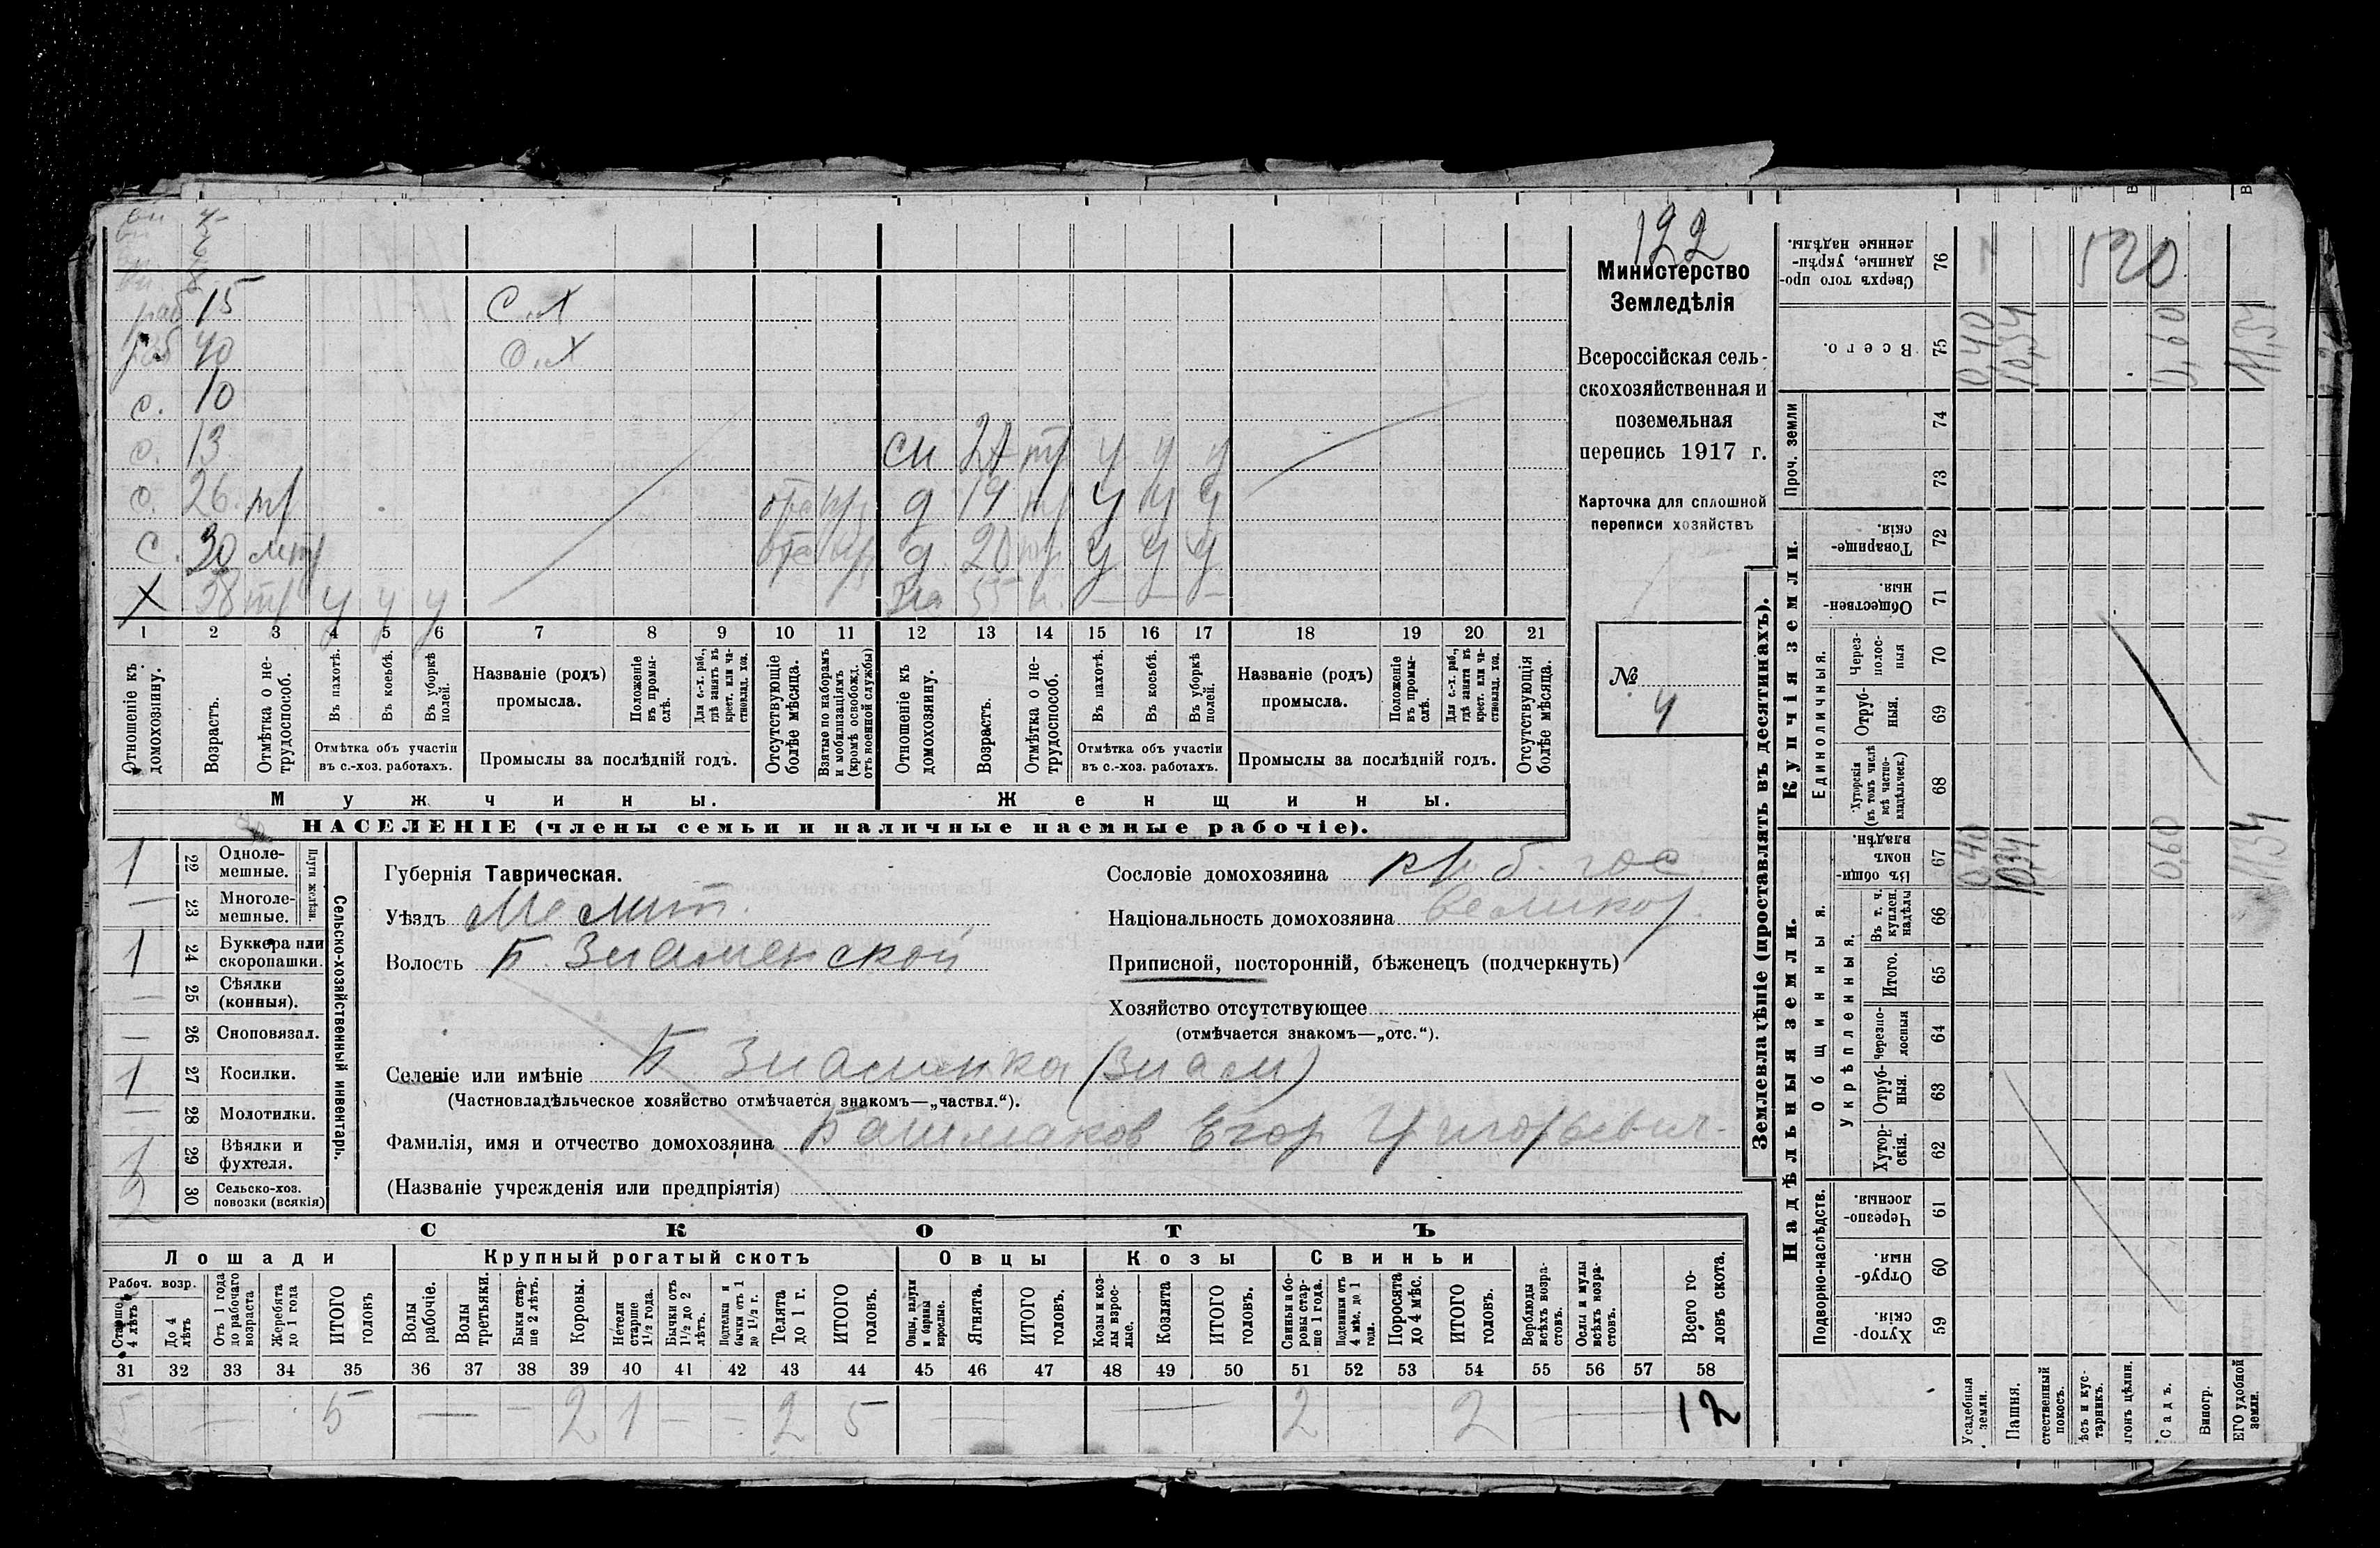 122
Министерство
Земледѣлія
Всероссійская сель-
скохозяйственная и
поземельная
перепись 1917 г.
Карточка для сплошной
переписи хозяйствъ
№
4
раб 15 С.Х
раб 40 С.Х
с. 10
с. 13 сн 27 тр у у у
с. 26 тр д 19 у у у
с. 30 д 20 у у у
X 58 тр у у у 55
1 2 3 4 5 6 7 8 9 10 11 12 13 14 15 16 17 18 19 20 21
Отношеніе къ домохозяину.
Возрастъ.
Отмѣтка о не-трудоспособ.
Въ пахотѣ.
Въ косьбѣ.
Въ уборкѣ полей.
Отмѣтка объ участіи въ с.-хоз. работахъ.
Названіе (родъ) промысла.
Положеніе въ промы-слѣ.
Для с.-х. раб., гдѣ занятъ въ крест. или ча-стновлад. хоз.
Промыслы за послѣдній годъ.
Отсутствующіе болѣе мѣсяца.
Взятые по наборамъ и мобилизаціямъ (кромѣ освобожд. отъ военной службы)
Отношеніе къ домохозяину.
Возрастъ.
Отмѣтка о не-трудоспособ.
Въ пахотѣ.
Въ косьбѣ.
Въ уборкѣ полей.
Отмѣтка объ участіи въ с.-хоз. работахъ.
Названіе (родъ) промысла.
Положеніе въ промы-слѣ.
Для с.-х. раб., гдѣ занята въ крест. или ча-стновлад. хоз.
Промыслы за послѣдній годъ.
Отсутствующія болѣе мѣсяца.
Мужчины. Женщины.
НАСЕЛЕНІЕ (члены семьи и наличные наемные рабочіе).
1 22 Одноле-мешные.
— 23 Многоле-мешные.
Плуги желѣзн.
1 24 Буккера или скоропашки.
— 25 Сѣялки (конныя).
— 26 Сноповязал.
1 27 Косилки.
— 28 Молотилки.
1 29 Вѣялки и фухтеля.
2 30 Сельско-хоз. повозки (всякія)
Сельско-хозяйственный инвентарь.
Губернія Таврическая.
Уѣздъ Мелит.
Волость Б. Знаменской
Селеніе или имѣніе Б Знаменка (Знам)
(Частновладѣльческое хозяйство отмѣчается знакомъ—„частвл.“).
Фамилія, имя и отчество домохозяина Башмаков Егор Григорьевич
(Названіе учрежденія или предпріятія)
Сословіе домохозяина кр. б. гос.
Національность домохозяина великор.
Приписной, посторонній, бѣженецъ (подчеркнуть)
Хозяйство отсутствующее
(отмѣчается знакомъ—„отс.“).
СКОТЪ
Лошади Крупный рогатый скотъ Овцы Козы Свиньи
Рабоч. возр.
Старше 4 лѣтъ
До 4 лѣтъ
Отъ 1 года до рабочаго возраста
Жеребята до 1 года
ИТОГО головъ
Волы рабочіе.
Волы третьяки.
Быки стар-ше 2 лѣтъ.
Коровы.
Нетели старше 1½ года.
Бычки отъ 1½ до 2 лѣтъ.
Подтелки и бычки отъ 1 до 1½ г.
Телята до 1 г.
ИТОГО головъ.
Овцы, валухи и бараны взрослые.
Ягнята.
ИТОГО головъ.
Козы и коз-лы взрос-лые.
Козлята
ИТОГО головъ.
Свиньи и бо-ровы стар-ше 1 года.
Подсвинки отъ 4 мѣс. до 1 года.
Поросята до 4 мѣс.
ИТОГО головъ.
Верблюды всѣхъ возра-стовъ.
Ослы и мулы всѣхъ возра-стовъ.
Всего го-ловъ скота.
31 32 33 34 35 36 37 38 39 40 41 42 43 44 45 46 47 48 49 50 51 52 53 54 55 56 57 58
5 — 5 — — 2 1 — — 2 5 — — 2 2 — — 12
Землевладѣніе (проставлять въ десятинахъ).
Надѣльныя земли. Купчія земли. Проч. земли
Подворно-наслѣдств. Общинныя. Единоличныя.
Укрѣпленныя.
Хутор-скія. 59
Отруб-ныя. 60
Черезпо-лосныя. 61
Хутор-скія. 62
Отруб-ныя. 63
Черезпо-лосныя 64
Итого. 65
Въ т. ч. куплен. надѣлы 66
Въ общи-номъ владѣн. 67
Хуторскія (въ томъ числѣ всѣ частно-владѣльческ.) 68
Отруб-ныя. 69
Через-полос-ныя 70
Обществен-ныя. 71
Товарище-скія. 72
73
74
Всего. 75
Сверхъ того про-данные, укрѣп-ленные надѣлы. 76
Усадебныя земли. 0,40 0,40
Пашня. 10,34 10,34
тественный покосъ.
ѣсъ и кус-тарникъ. 520
ыгонъ цѣлин.
Садъ. 0,60 0,60
Виногр.
ЕГО удобной земли. 11,34 11,34